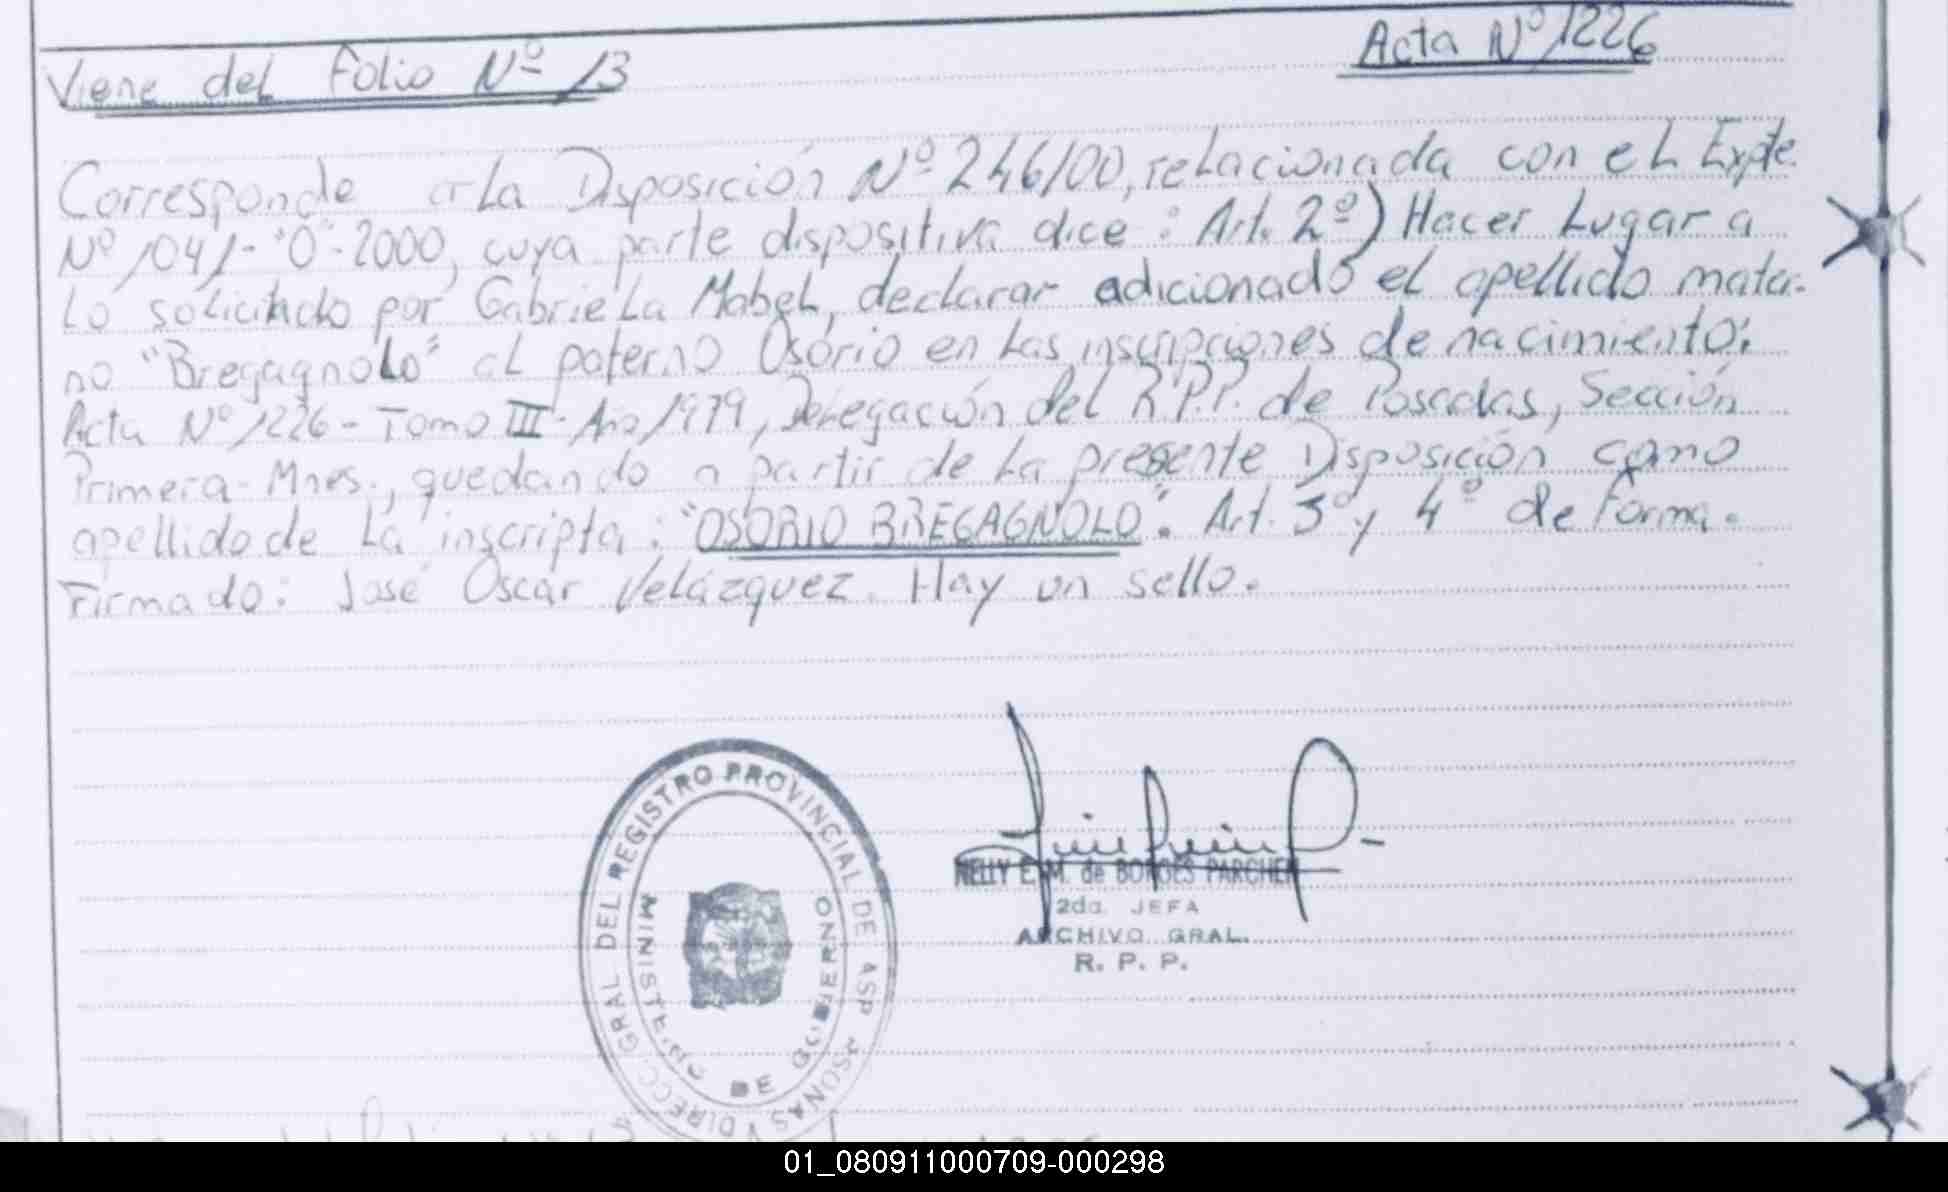 Viene del Folio Nº 13
Acta Nº 1226
Corresponde a la Disposición Nº 246/00, relacionada con el Expte.
Nº 1041-"O"-2000, cuya parte dispositiva dice: Art. 2º) Hacer Lugar a
Lo solicitado por Gabriela Mabel, declarar adicionado el apellido mater-
no "Bregagnolo" al paterno Osorio en las inscripciones de nacimiento:
Acta Nº 1226 - Tomo III - Año 1979, Delegación del R.P.P. de Posadas, Sección
Primera - Mnes., quedando a partir de la presente Disposición como
apellido de la inscripta: "OSORIO BREGAGNOLO". Art. 3º y 4º de Forma.
Firmado: José Oscar Velázquez. Hay un sello.
DIRECC. GRAL DEL REGISTRO PROVINCIAL DE
MINISTERIO DE GOBIERNO
NELLY E. M. de BORGES PARCHEN
2da. JEFA
ARCHIVO GRAL.
R. P. P.
01_080911000709-000298